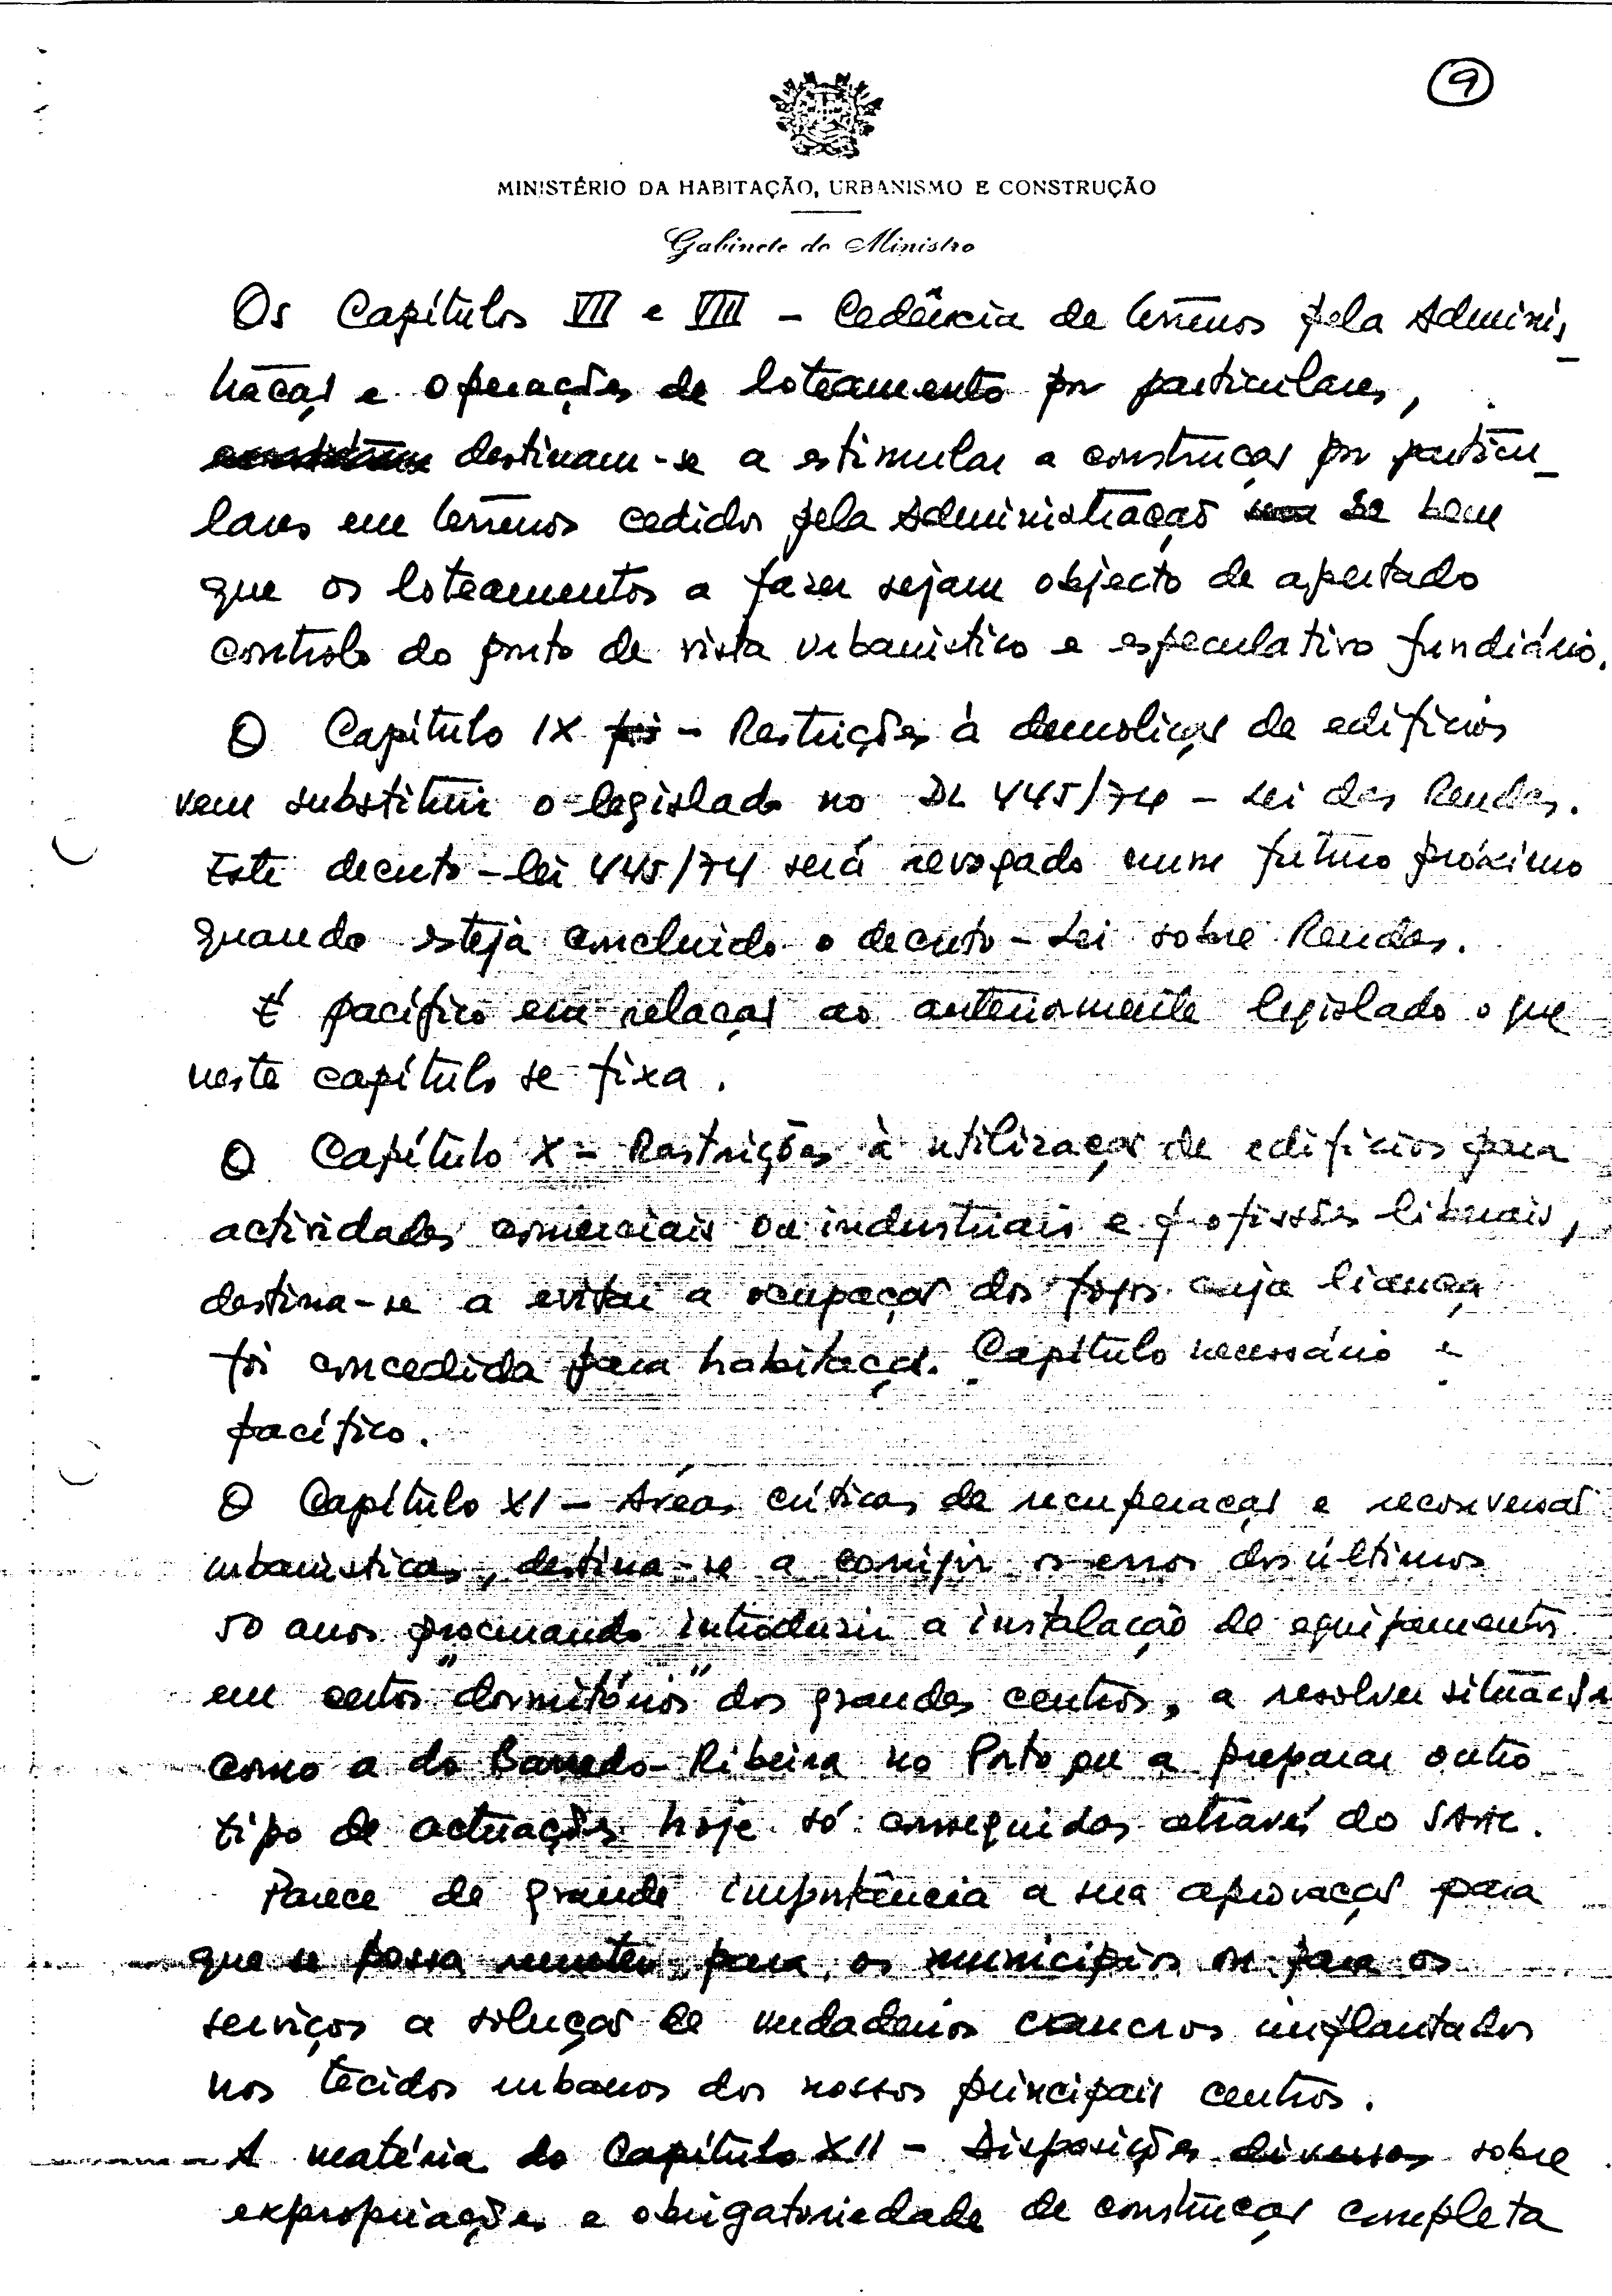 9
MINISTÉRIO DA HABITAÇÃO, URBANISMO E CONSTRUÇÃO
Gabinete do Ministro
Os Capítulos VII e VIII – Cedência de terrenos pela Adminis
tração e operações de loteamento por particulares,
destinam-se a estimular a construção por particu
lares em terrenos cedidos pela Administração se bem
que os loteamentos a fazer sejam objecto de apertado
controlo do ponto de vista urbanístico e especulativo fundiário.
O Capítulo IX – Restrições à demolição de edifícios
vem substituir o legislado no DL 445/74 – Lei das Rendas.
Este decreto-lei 445/74 será revogado num futuro próximo
quando esteja concluido o decreto-Lei sobre Rendas.
É pacífico em relação ao anteriormente legislado o que
neste capítulo se fixa.
O Capítulo X – Restrições à utilização de edifícios para
actividades comerciais ou industriais e profissões liberais,
destina-se a evitar a ocupação dos fogos cuja licença
foi concedida para habitação. Capítulo necessário e
pacífico.
O Capítulo XI – Áreas críticas de recuperação e reconversão
urbanísticas, destina-se a corrigir os erros dos últimos
50 anos procurando introduzir a instalação de equipamentos
em certos "dormitórios" dos grandes centros, a resolver situações
como a do Barredo-Ribeira no Porto ou a preparar outro
tipo de actuações hoje só conseguidas através do SAAL.
Parece de grande importância a sua aprovação para
que se possa remeter para os municípios ou para os
serviços a solução de verdadeiros cancros implantados
nos tecidos urbanos dos nossos principais centros.
A matéria do Capítulo XII – Disposições diversas sobre
expropriações e obrigatoriedade de construção completa